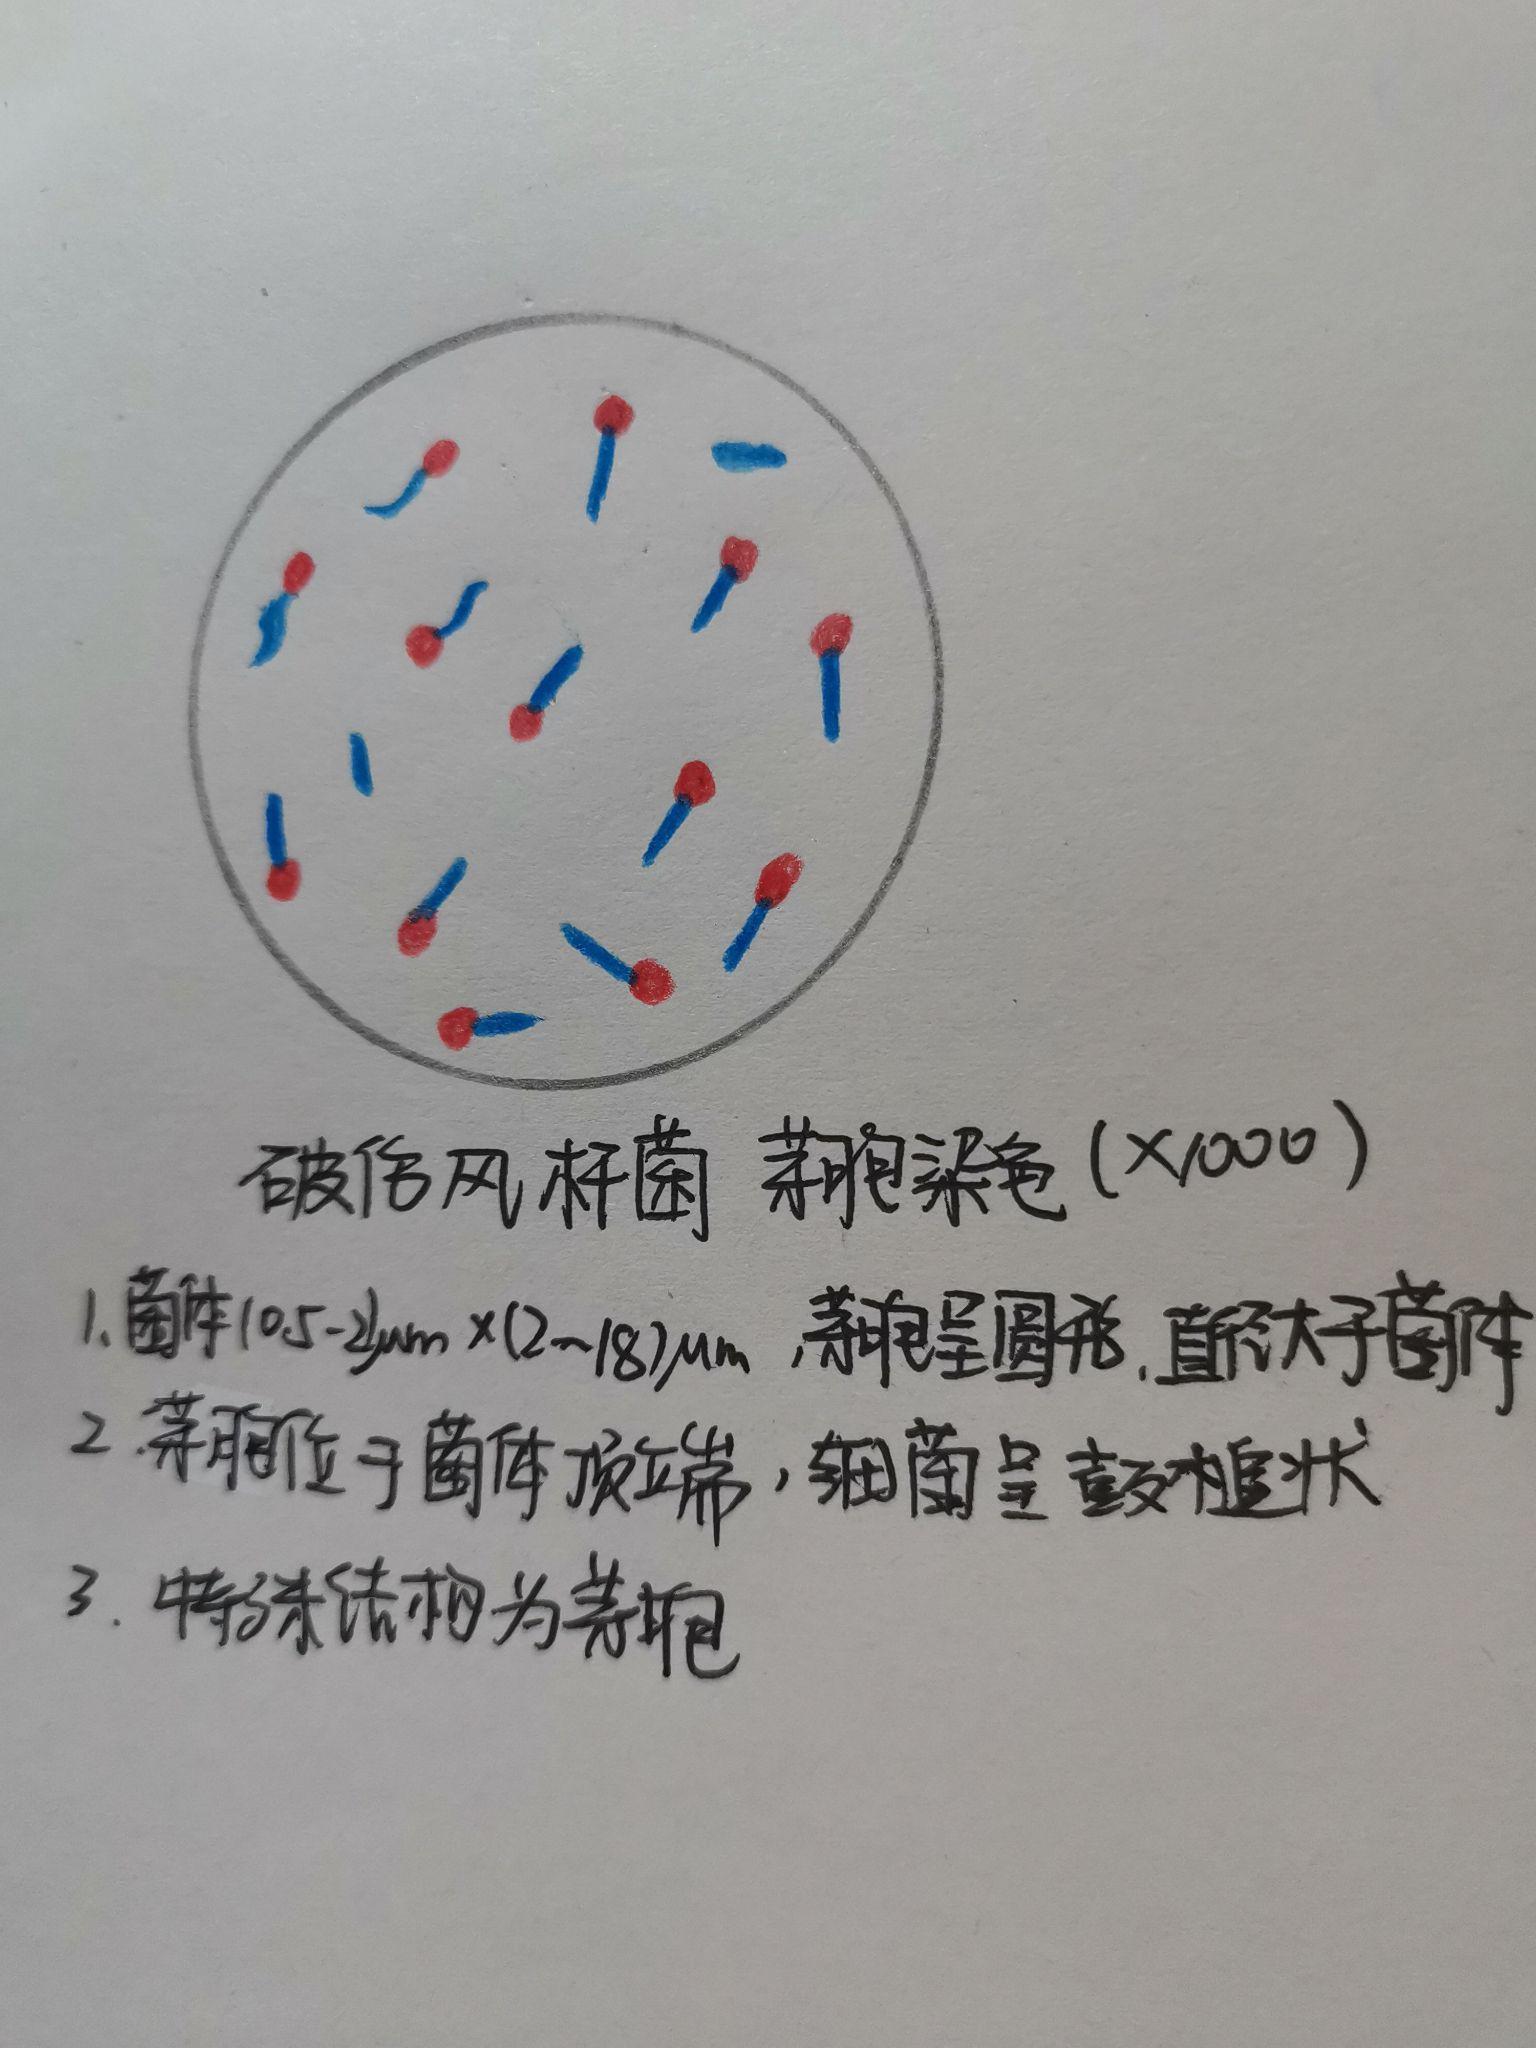 破伤风杆菌 芽胞染色(×1000)
1.菌体(0.5-2)μm×(2~18)μm,芽胞呈圆形,直径大于菌体
2.芽胞位于菌体顶端,细菌呈鼓槌状
3.特殊结构为芽胞